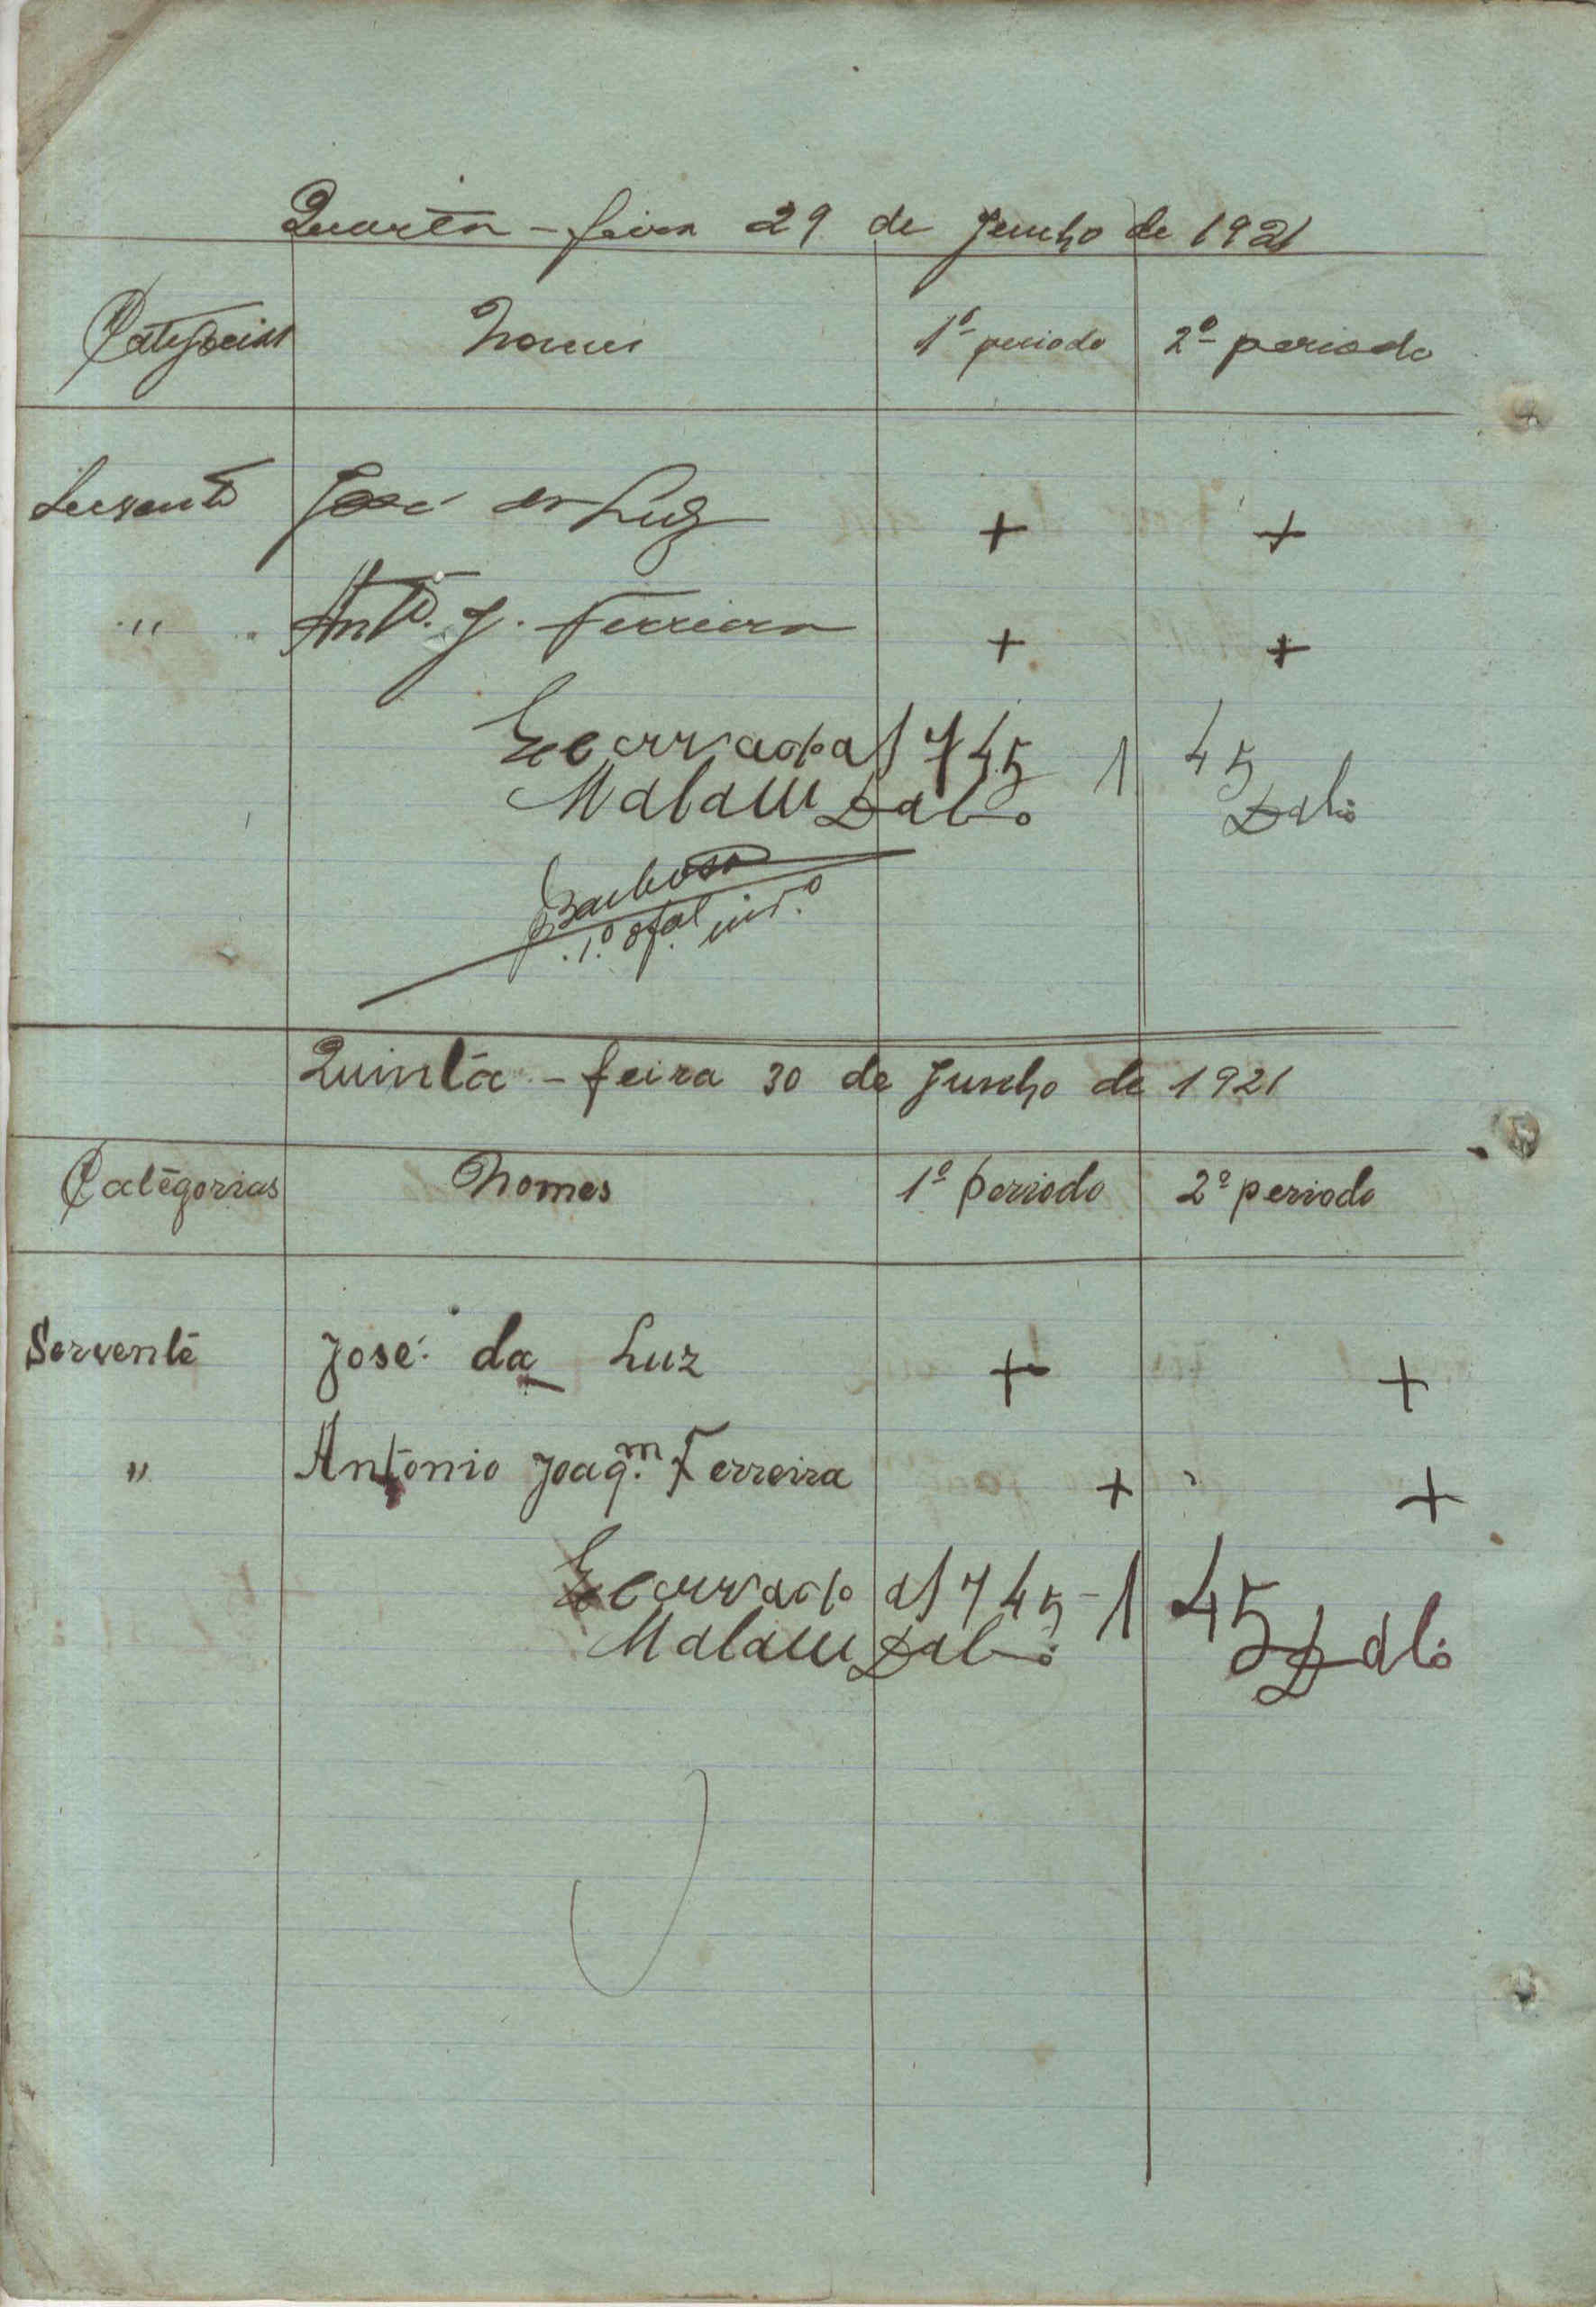 Quarta-feira 29 de Junho de 1921
Categorias Nomes 1º periodo 2º periodo
Servente José da Luz + +
" Antº. J. Ferreira + +
Ecerrado as 7 45 1 45
Malam Daló Daló
Barbosa
1.º ofal. intº.
Quinta-feira 30 de Junho de 1921
Categorias Nomes 1º periodo 2º periodo
Servente José da Luz + +
" Antonio Joaqm. Ferreira + +
Ecerrado as 7 45 - 1 45
Malam Daló Daló